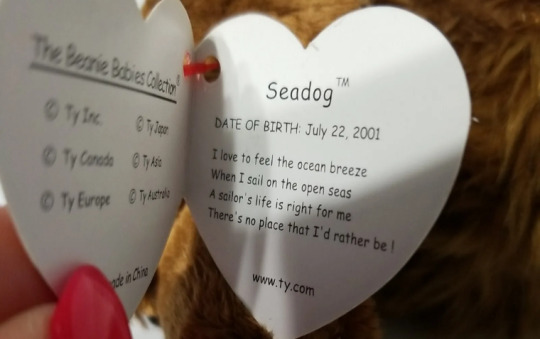 The Beanie Babies Collection®
© Ty Inc.
© Ty Japan
© Ty Canada
© Ty Asia
© Ty Europe
© Ty Australia
made in China
Seadog™
DATE OF BIRTH: July 22, 2001
I love to feel the ocean breeze
When I sail on the open seas
A sailor's life is right for me
There's no place that I'd rather be !
www.ty.com